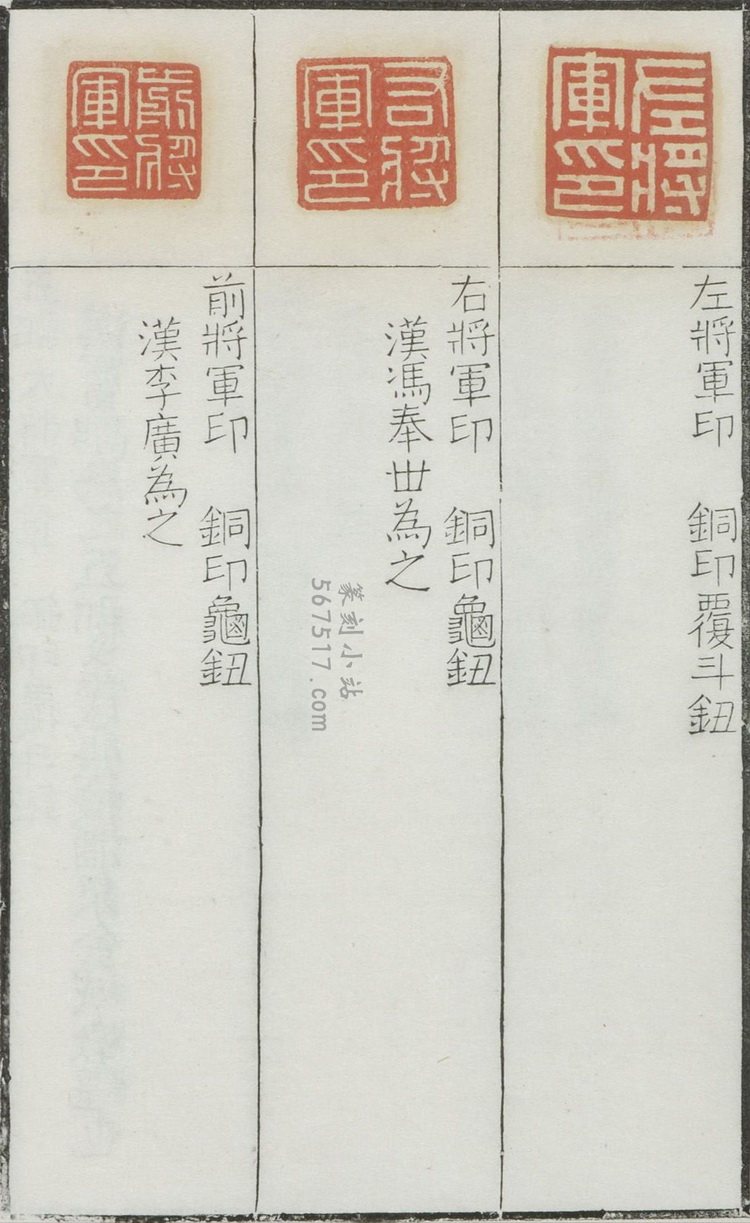 左將軍印
左將軍印 銅印覆斗鈕
右將軍印
右將軍印 銅印龜鈕
漢馮奉丗為之
前將軍印
前將軍印 銅印龜鈕
漢李廣為之
篆刻小站
567517.com